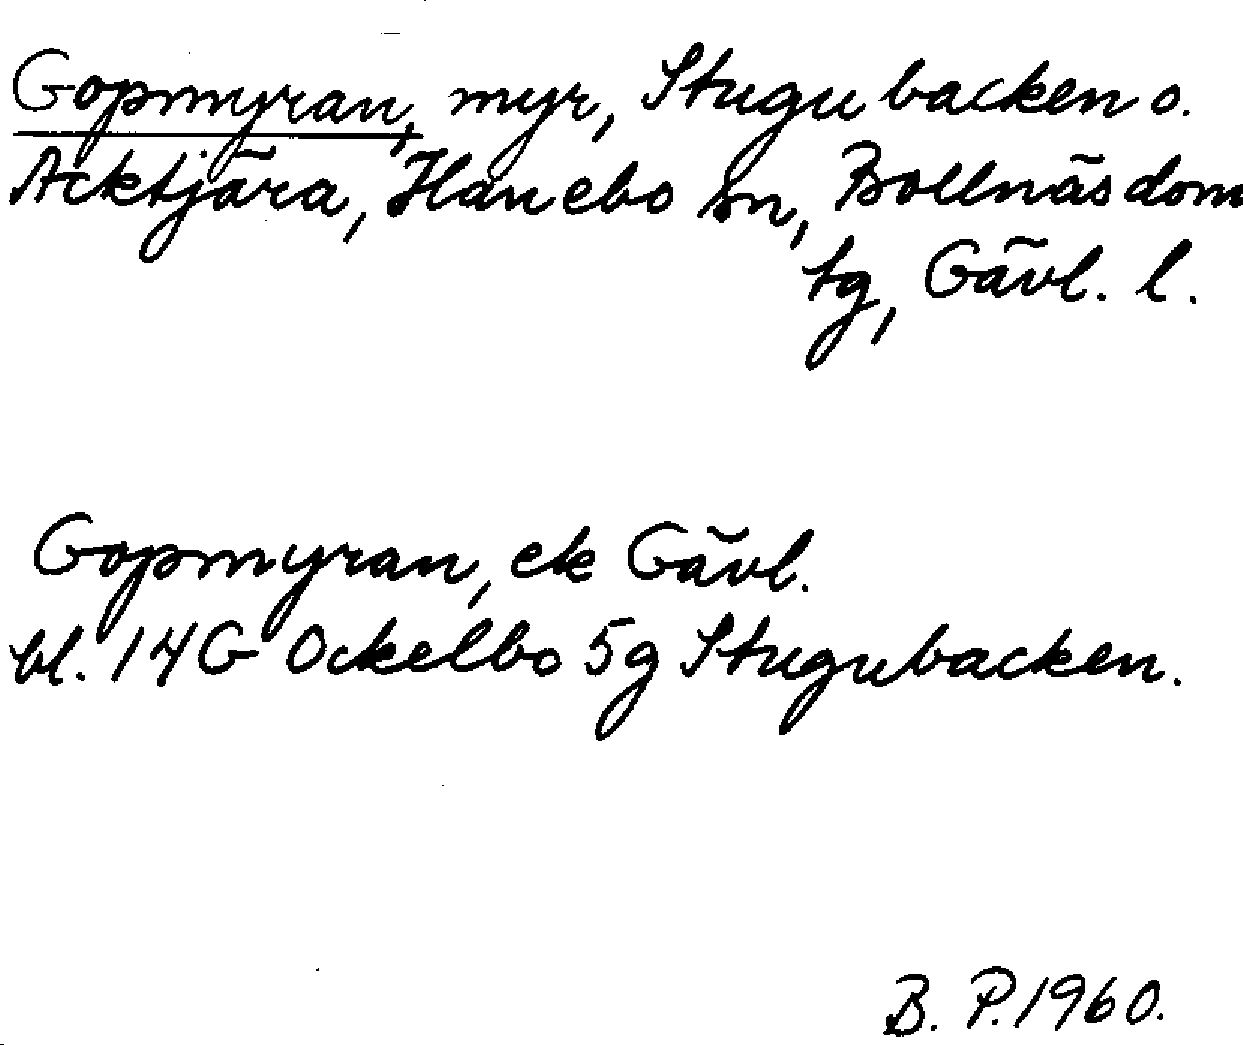 Gopmyran, myr, Stugubacken o.
Acktjära, Hanebo sn, Bollnäs dom
sg, Gävl. l.
Gopmyran, ek Gävl.
bl. 14G Ockelbo 5g Stugubacken.
B. P. 1960.